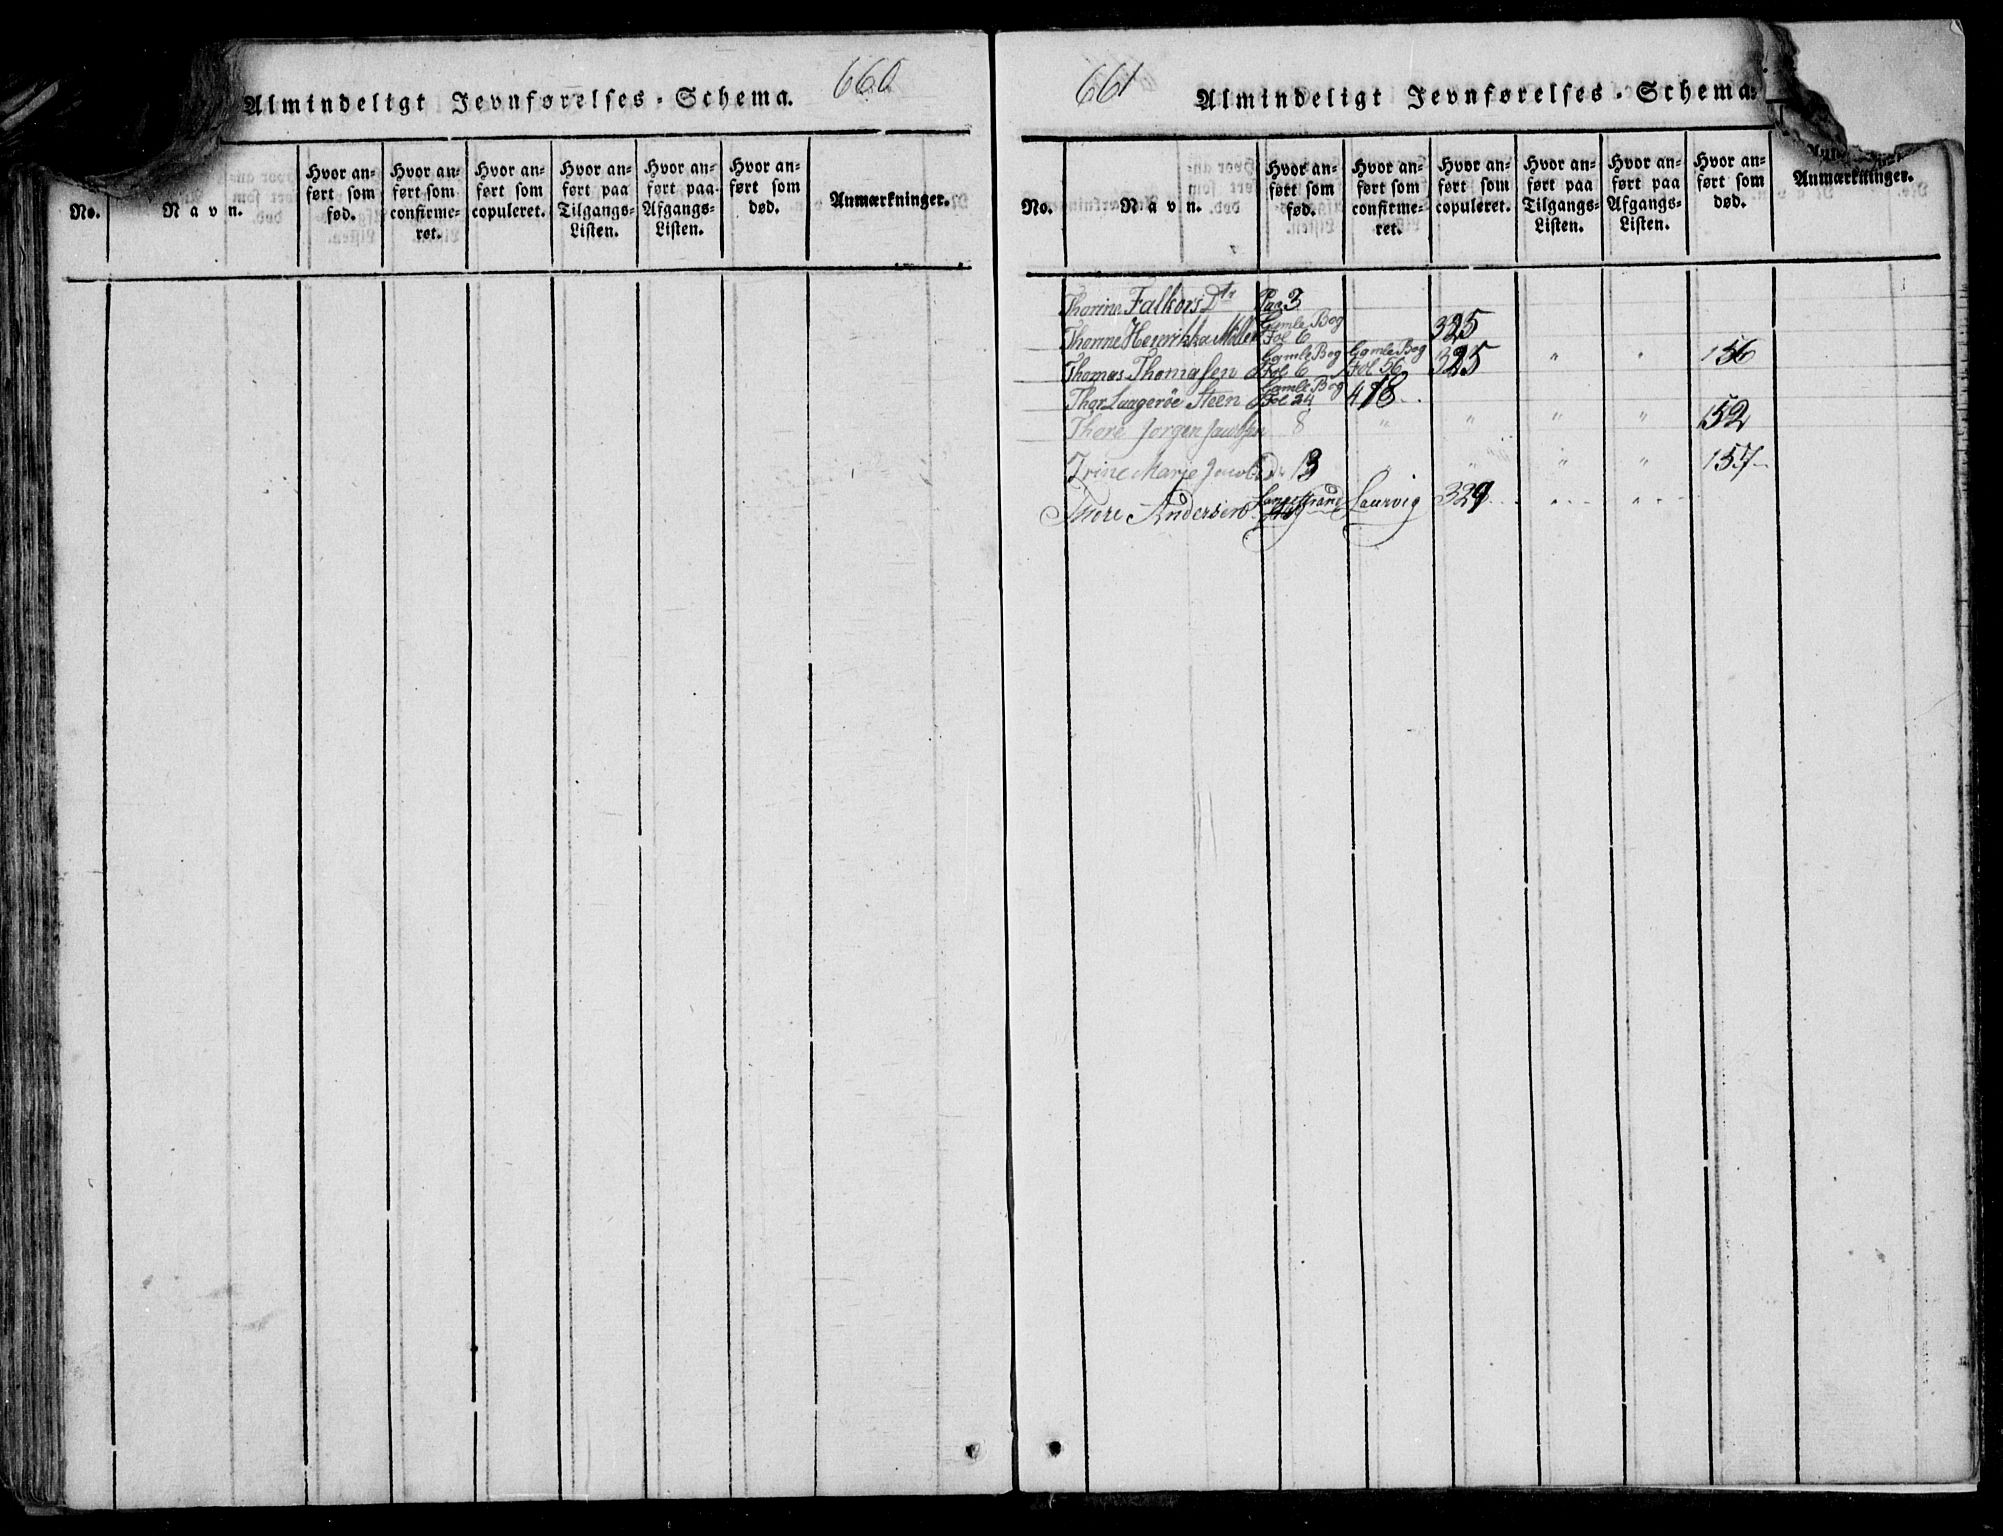 660
Almindeligt Jevnførelses-Schema.
No.
Navn.
Hvor an-
ført som
fød.
Hvor an-
ført som
confirme-
ret.
Hvor an-
ført som
copuleret.
Hvor an-
ført paa
Tilgangs-
Listen.
Hvor an-
ført paa
Afgangs-
Listen.
Hvor an-
ført som
død.
Anmærkninger.
661
Almindeligt Jevnførelses-Schema
No.
Navn.
Hvor an-
ført som
fød.
Hvor an-
ført som
confirme-
ret.
Hvor an-
ført som
copuleret.
Hvor an-
ført paa
Tilgangs-
Listen.
Hvor an-
ført paa
Afgangs-
Listen.
Hvor an-
ført som
død.
Anmærkninger.
Thorine Falkors Dtr Pag 3
Gamle Bog
Thorine Henrikka Møller Fol 6 325
Gamle Bog Gamle Bog
Thomas Thomassen Fol 6 Fol 56 325 " " 156
Gamle Bog
Thor Laageröe Steen Fol 24 418
Thore Jørgen Jacobsen 8 " " " " 152
Trine Marie Jacobsd: 13 " " " " 157
Langestrand
Thore Andersen Laurvig 329 " "